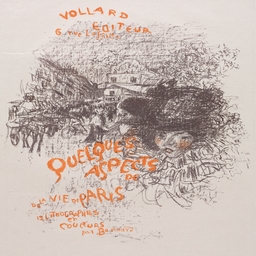 VOLLARD
EDITEUR
6, rue Laffitte
QUELQUES
ASPECTS
DE
LA VIE DE PARIS
12 LITHOGRAPHIES
EN
COULEURS
PAR BONNARD